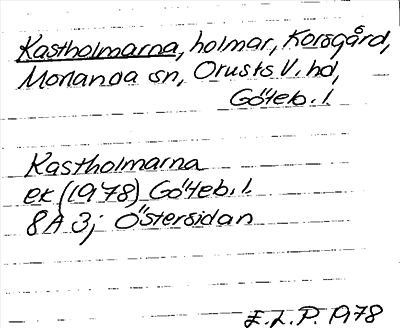 Kastholmarna, holmar, Korsgård,
Morlanda sn, Orusts V. hd,
Göteb. l.
Kastholmarna
ek (1978) Göteb. l.
8A 3j Östersidan
E.L.P. 1978